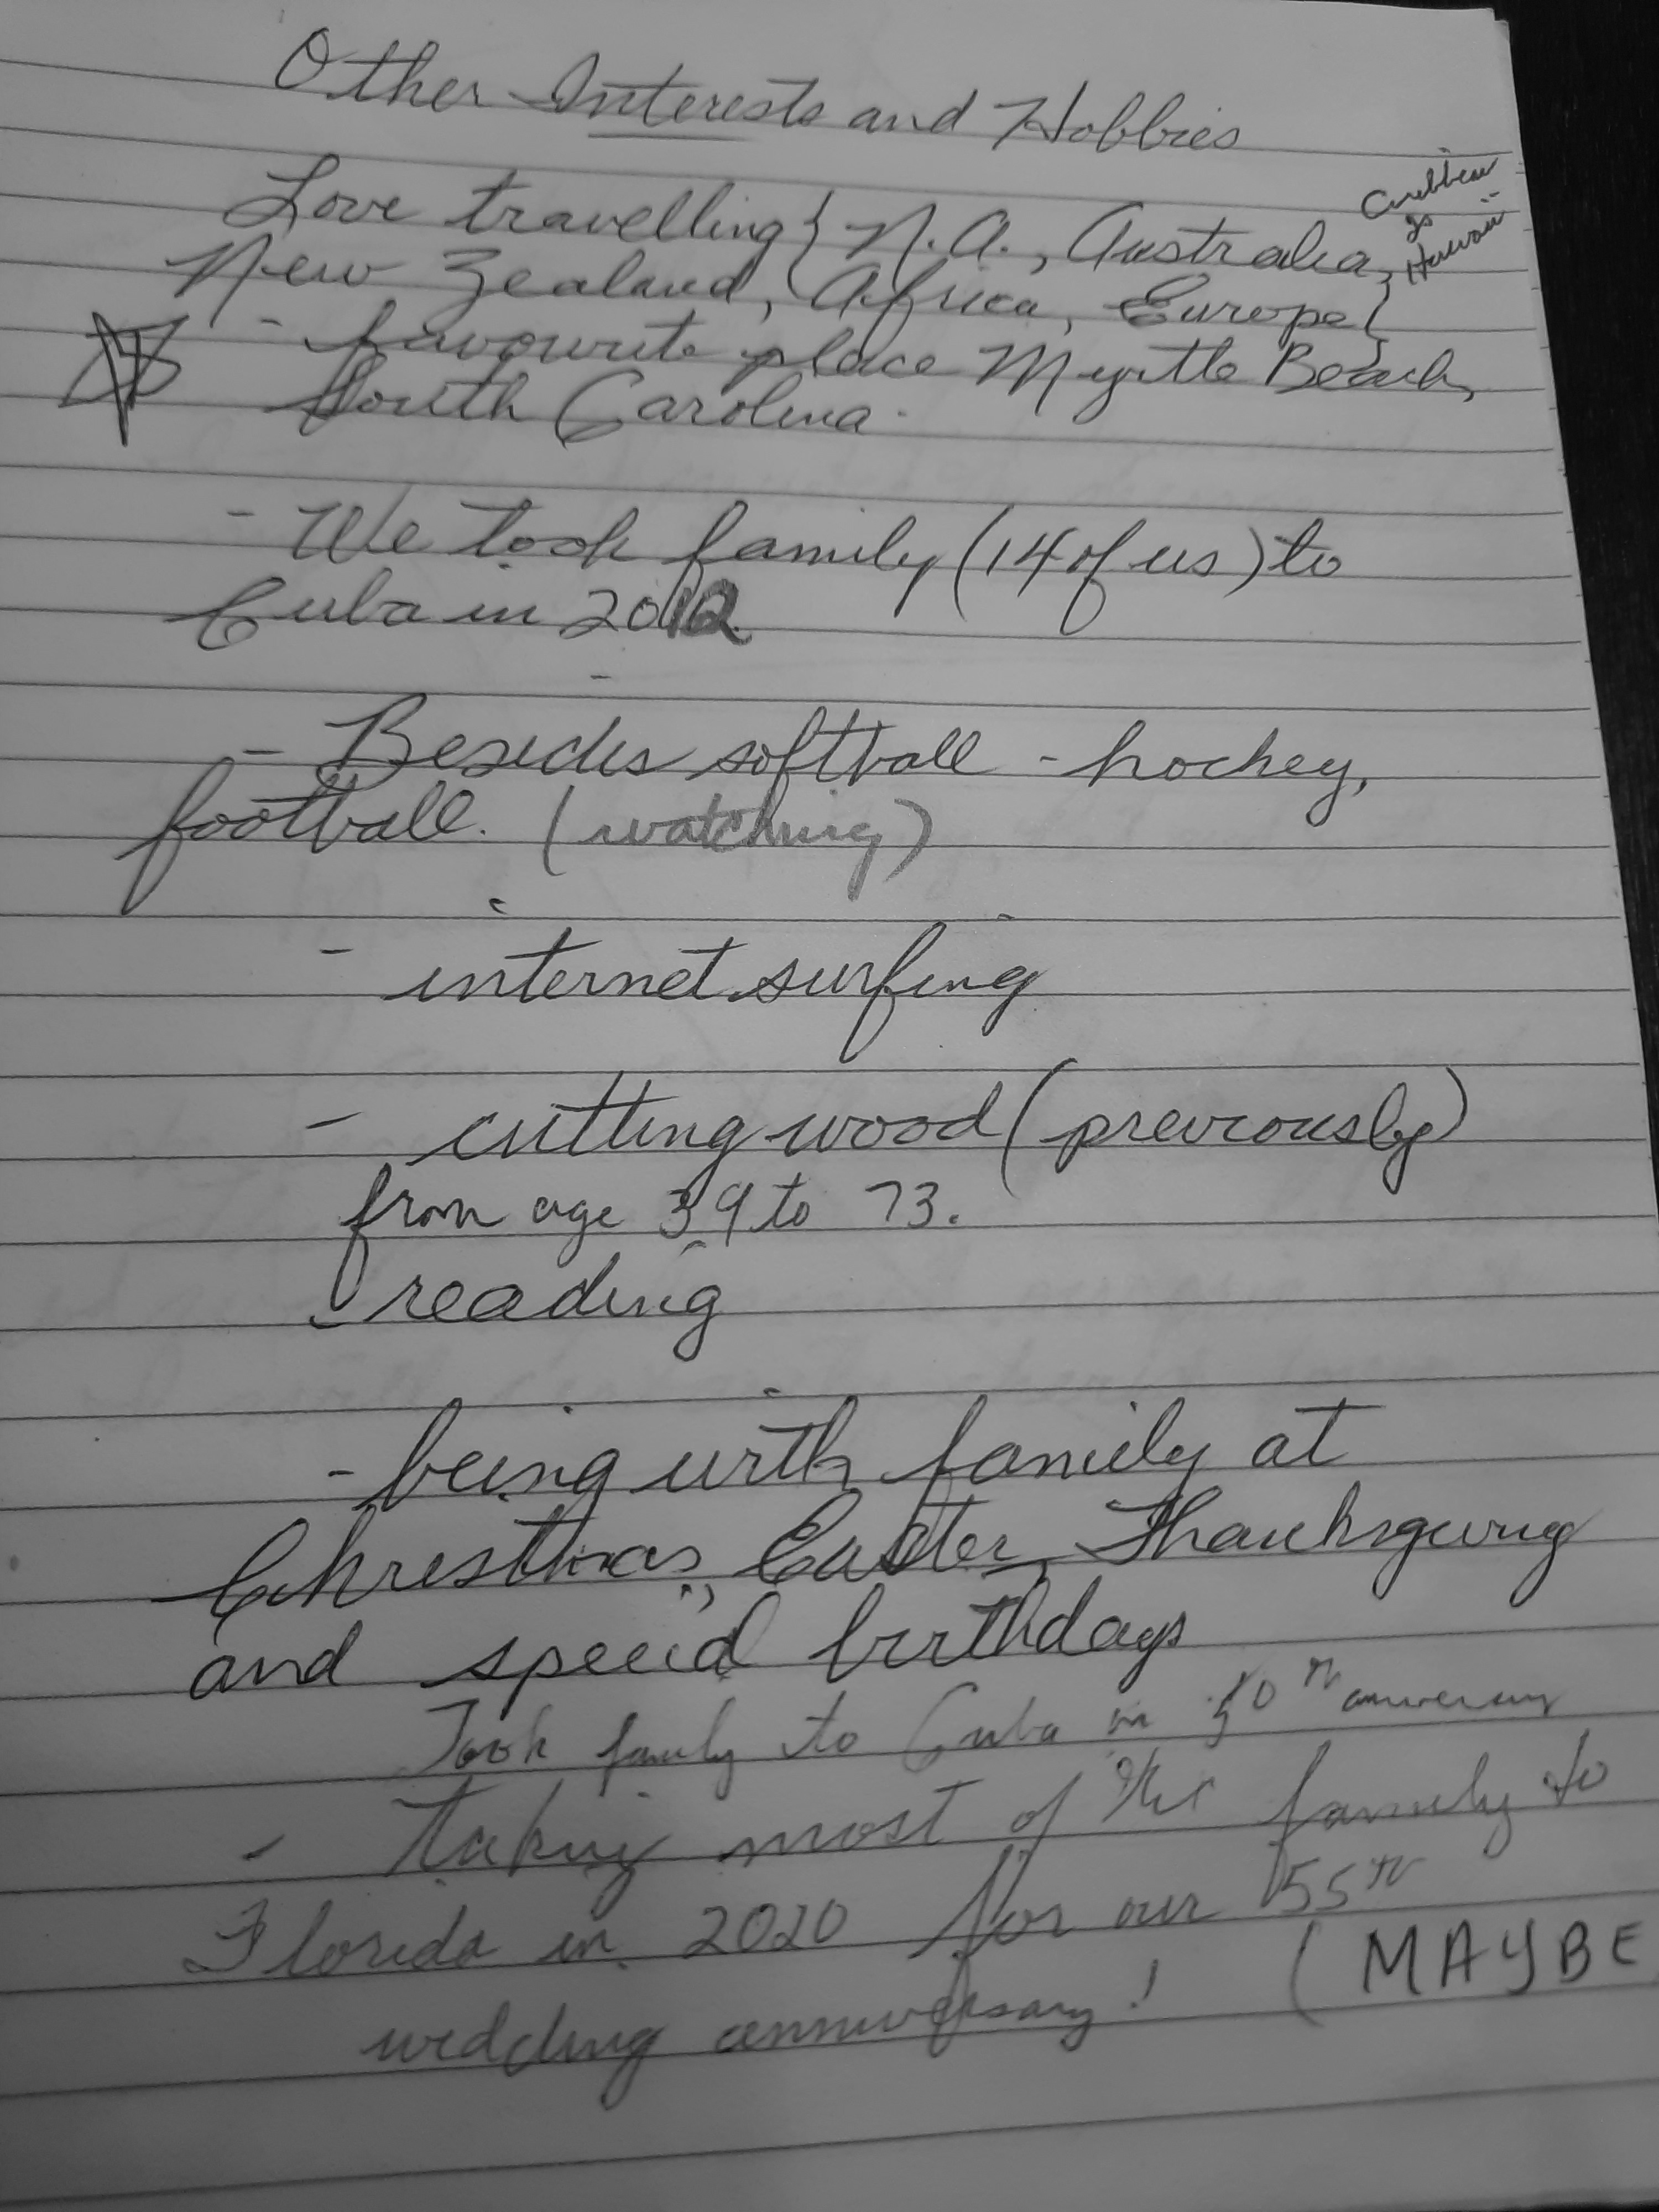 Other Interests and Hobbies
Love travelling { N.A., Australia,
Caribbean
Is
Hawaii
New Zealand, Africa, Europe }
- favourite place Myrtle Beach,
South Carolina.
- We took family (14 of us) to
Cuba in 2012
- Besides softball - hockey,
football. (watching)
- internet surfing
- cutting wood (previously)
from age 39 to 73.
- reading
- being with family at
Christmas, Easter, Thanksgiving
and special birthdays
Took family to Cuba in 50th anniversary
- taking most of the family to
Florida in 2020 for our 55th
wedding anniversary! (MAYBE